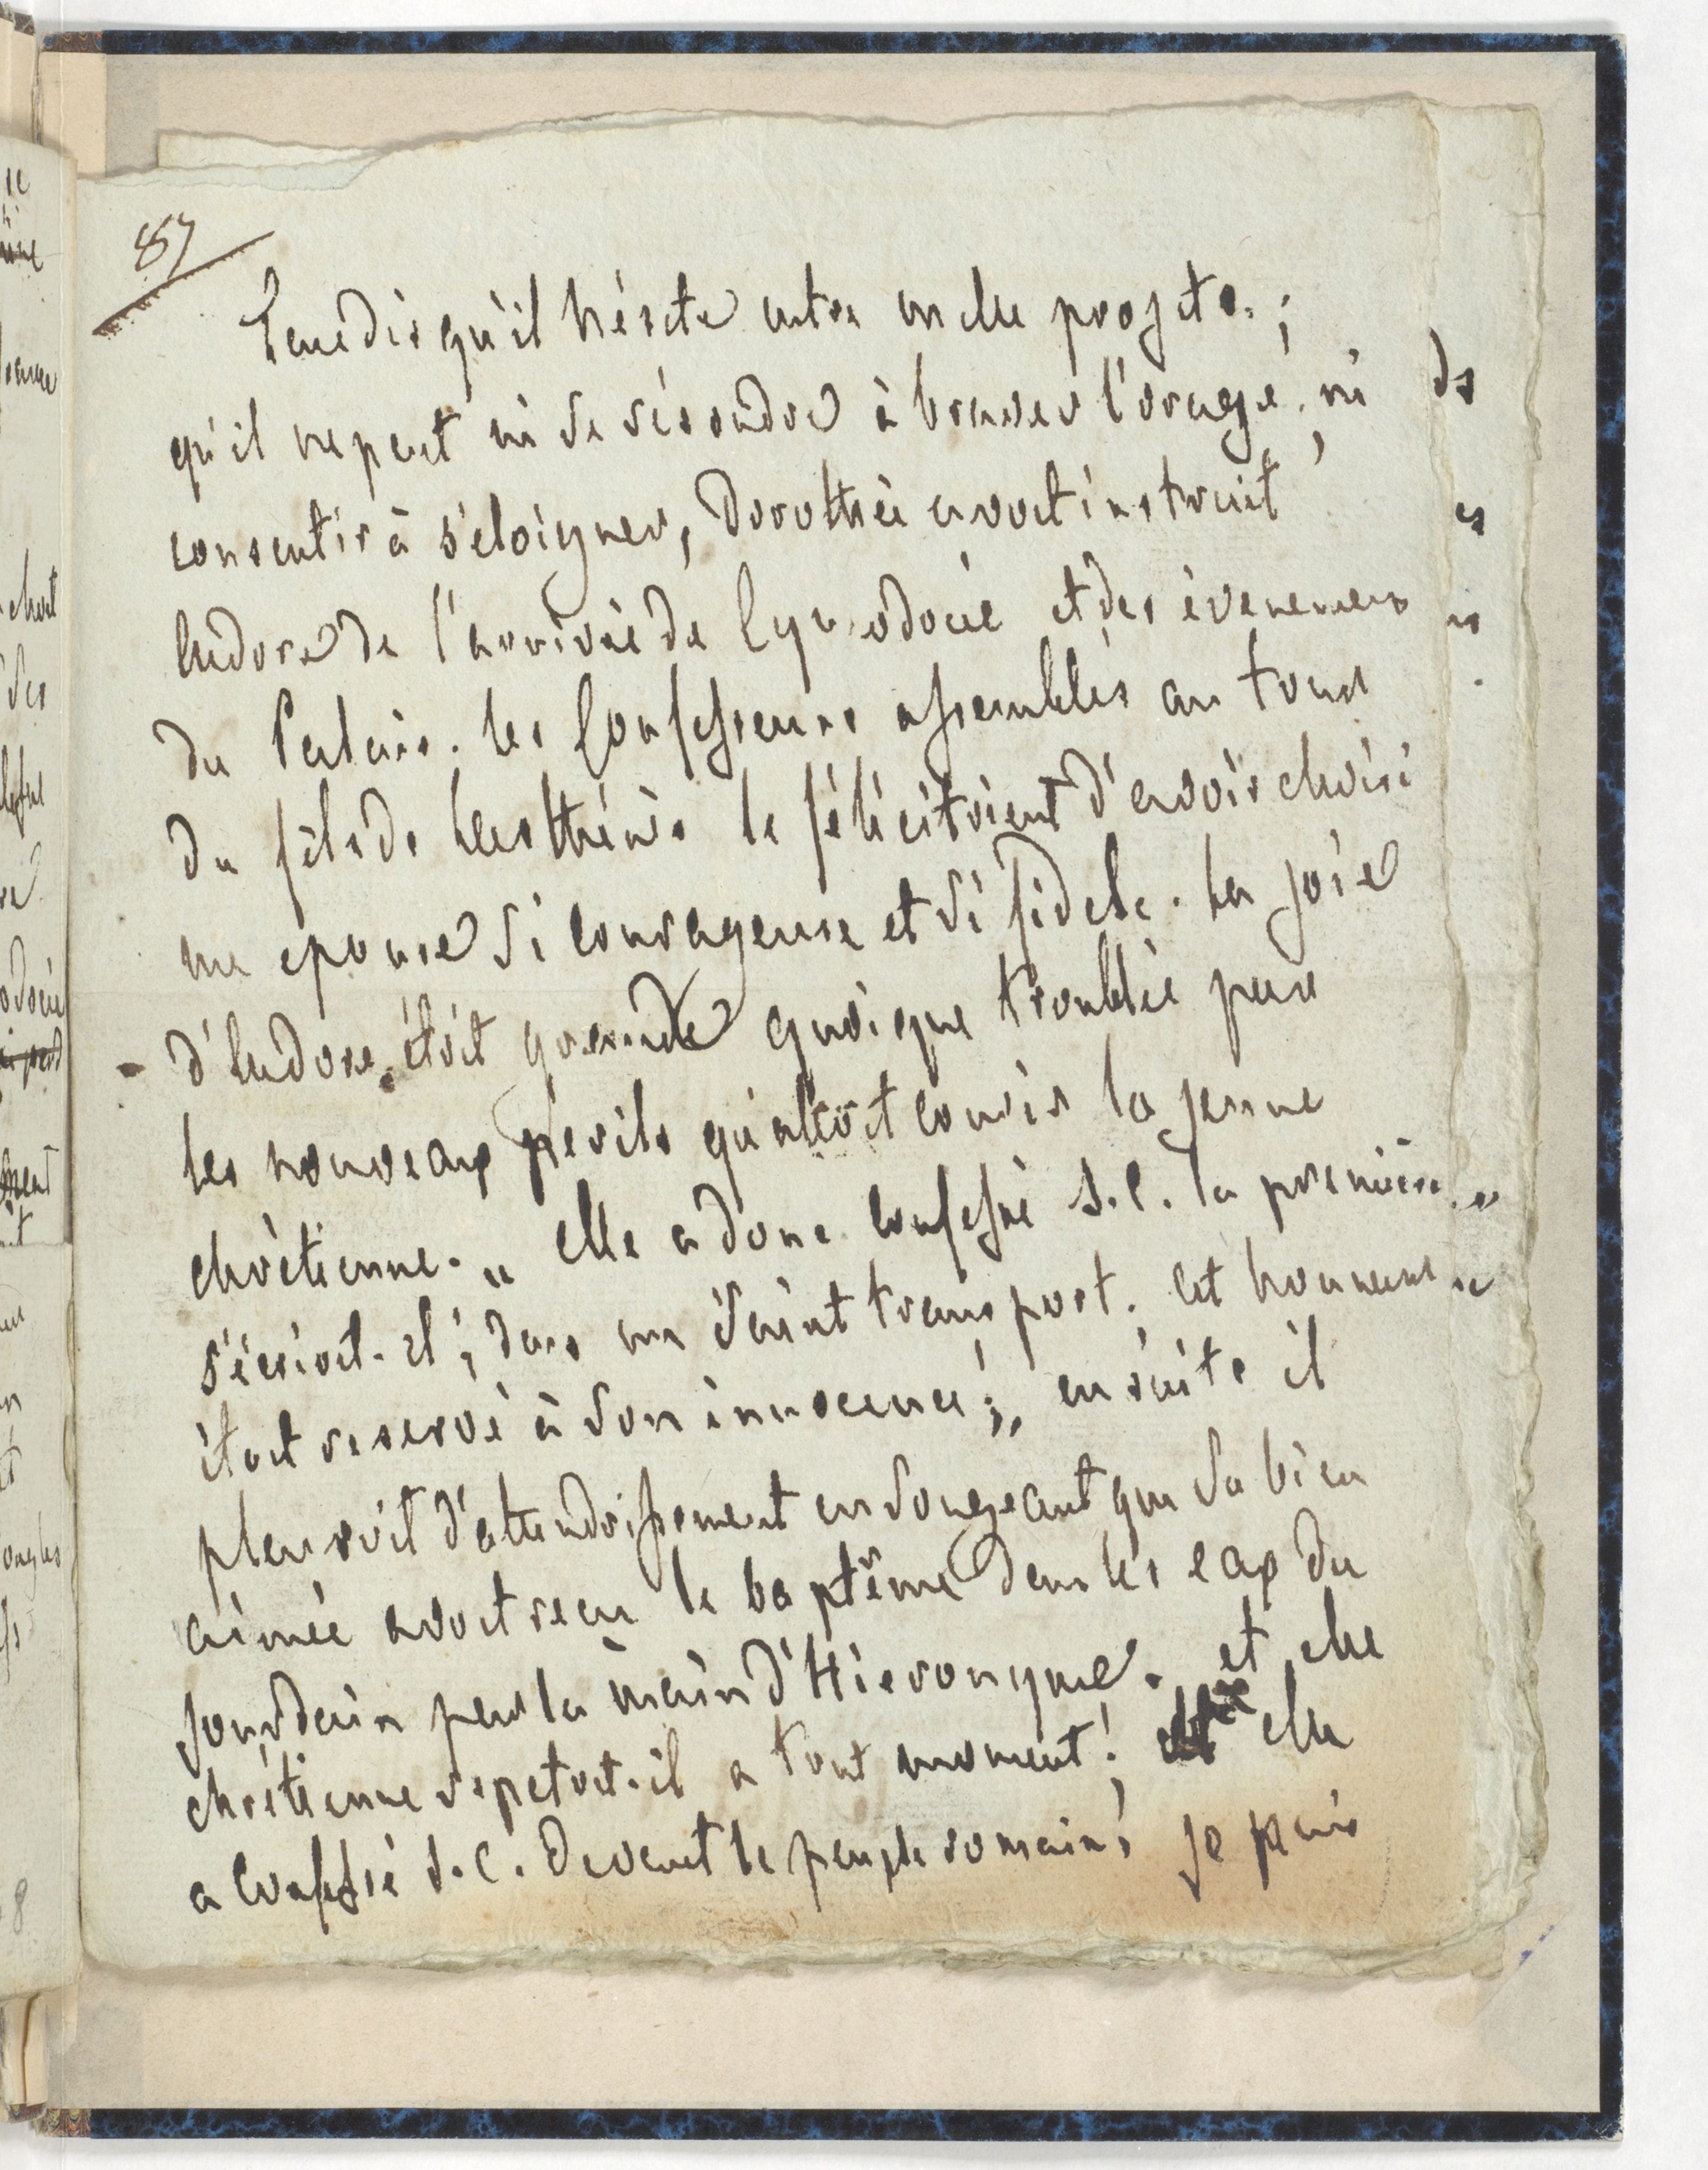 87
Tandis qu'il hésite entre mille projets ;
qu'il ne peut ni se résoudre à braver l'orage, ni
consentir à s'éloigner, Dorothée avoit instruit
Eudore de l'arrivée de Cymodocée et des évenemens
du Palais. les Confesseurs assemblés au tour
du fils de Lasthénès le félicitoient d'avoir choisi
une epouse si courageuse et si fidele. La joie
d'Eudore étoit grande quoique troublée par
les nouveaux périls qu'alloit courir la jeune
chrètienne. „ elle a donc confessé J. C. la première „
s'écrioit-il, dans un saint transport. cet honneur
étoit reservé à son innocence ; „ ensuite il
pleuroit d'attendrissement en songeant que sa bien
aimée avoit recu le baptême dans les eaux du
Jourdain par la main d'Hieronyme. et elle
chrétienne repetoit-il a tout moment ! elle
a confessé J. C. devant le peuple romain ! je puis
de
es